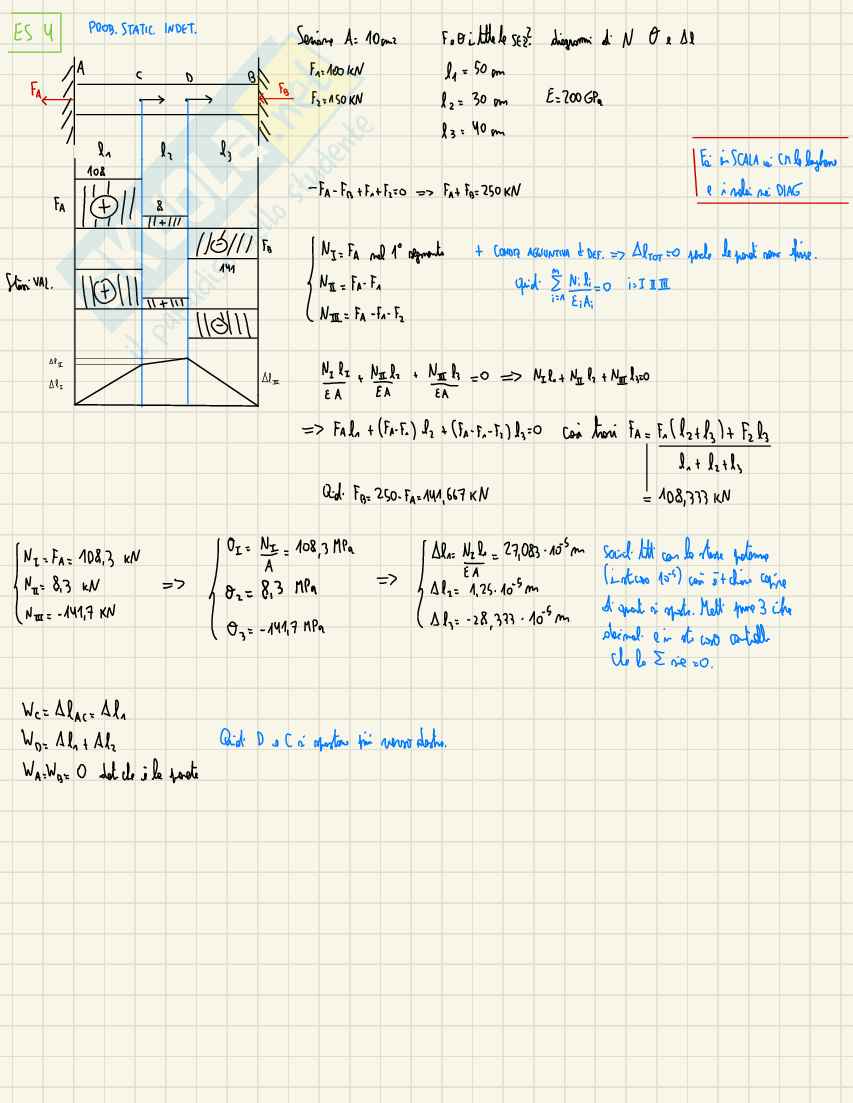 ES 4
PROB. STATIC INDET.
Sezione A = 10 cm²
F₁=100 KN
F₂=150 KN
F e σ in tutte le SEZ? diagrammi di N σ e Δl
l₁ = 50 cm
l₂ = 30 cm
l₃ = 40 cm
E=200 GPa
Fai in SCALA in CM le lunghezze
e i valori nei DIAG
A
C
D
B
F_A
F_B
l₁ l₂ l₃
108
8
F_A
F_B
141
Stessi VAL.
Δl_II
Δl_I
Δl_III
skuola.net
il paradiso dello studente
-F_A-F_B+F₁+F₂=0 => F_A+F_B=250 KN
N_I = F_A nel 1° segmento
N_II = F_A-F₁
N_III = F_A-F₁-F₂
+ CONDIZ AGGIUNTIVA di DEF. => Δl_TOT=0 perché le pareti sono fisse.
Quindi Σ_{i=1}^{m} N_i l_i / E_i A_i = 0 i=I II III
N_I l_I / EA + N_II l₂ / EA + N_III l₃ / EA = 0 => N_I l₁+N_II l₂+N_III l₃=0
=> F_A l₁ + (F_A-F₁) l₂ + (F_A-F₁-F₂) l₃=0 così trovi F_A = F₁(l₂+l₃)+F₂l₃ / l₁+l₂+l₃
= 108,333 KN
Quindi F_B=250-F_A=141,667 KN
N_I = F_A= 108,3 KN
N_II = 8,3 KN
N_III = -141,7 KN
=>
σ_I = N_I / A = 108,3 MPa
σ₂ = 8,3 MPa
σ₃ = -141,7 MPa
=>
Δl₁= N_I l₁ / EA = 27,083·10⁻⁵ m
Δl₂= 1,25·10⁻⁵ m
Δl₃= -28,333·10⁻⁵ m
Scrivili tutti con la stessa potenza
(in sto caso 10⁻⁵) così è + chiaro capire
di quanto si sposta. Metti pure 3 cifre
decimali e in sto caso controlla
che la Σ sia =0.
W_C= Δl_AC= Δl₁
W_D= Δl₁+Δl₂
W_A=W_B= 0 dato che è la parete
Quindi D e C si spostano verso destra.